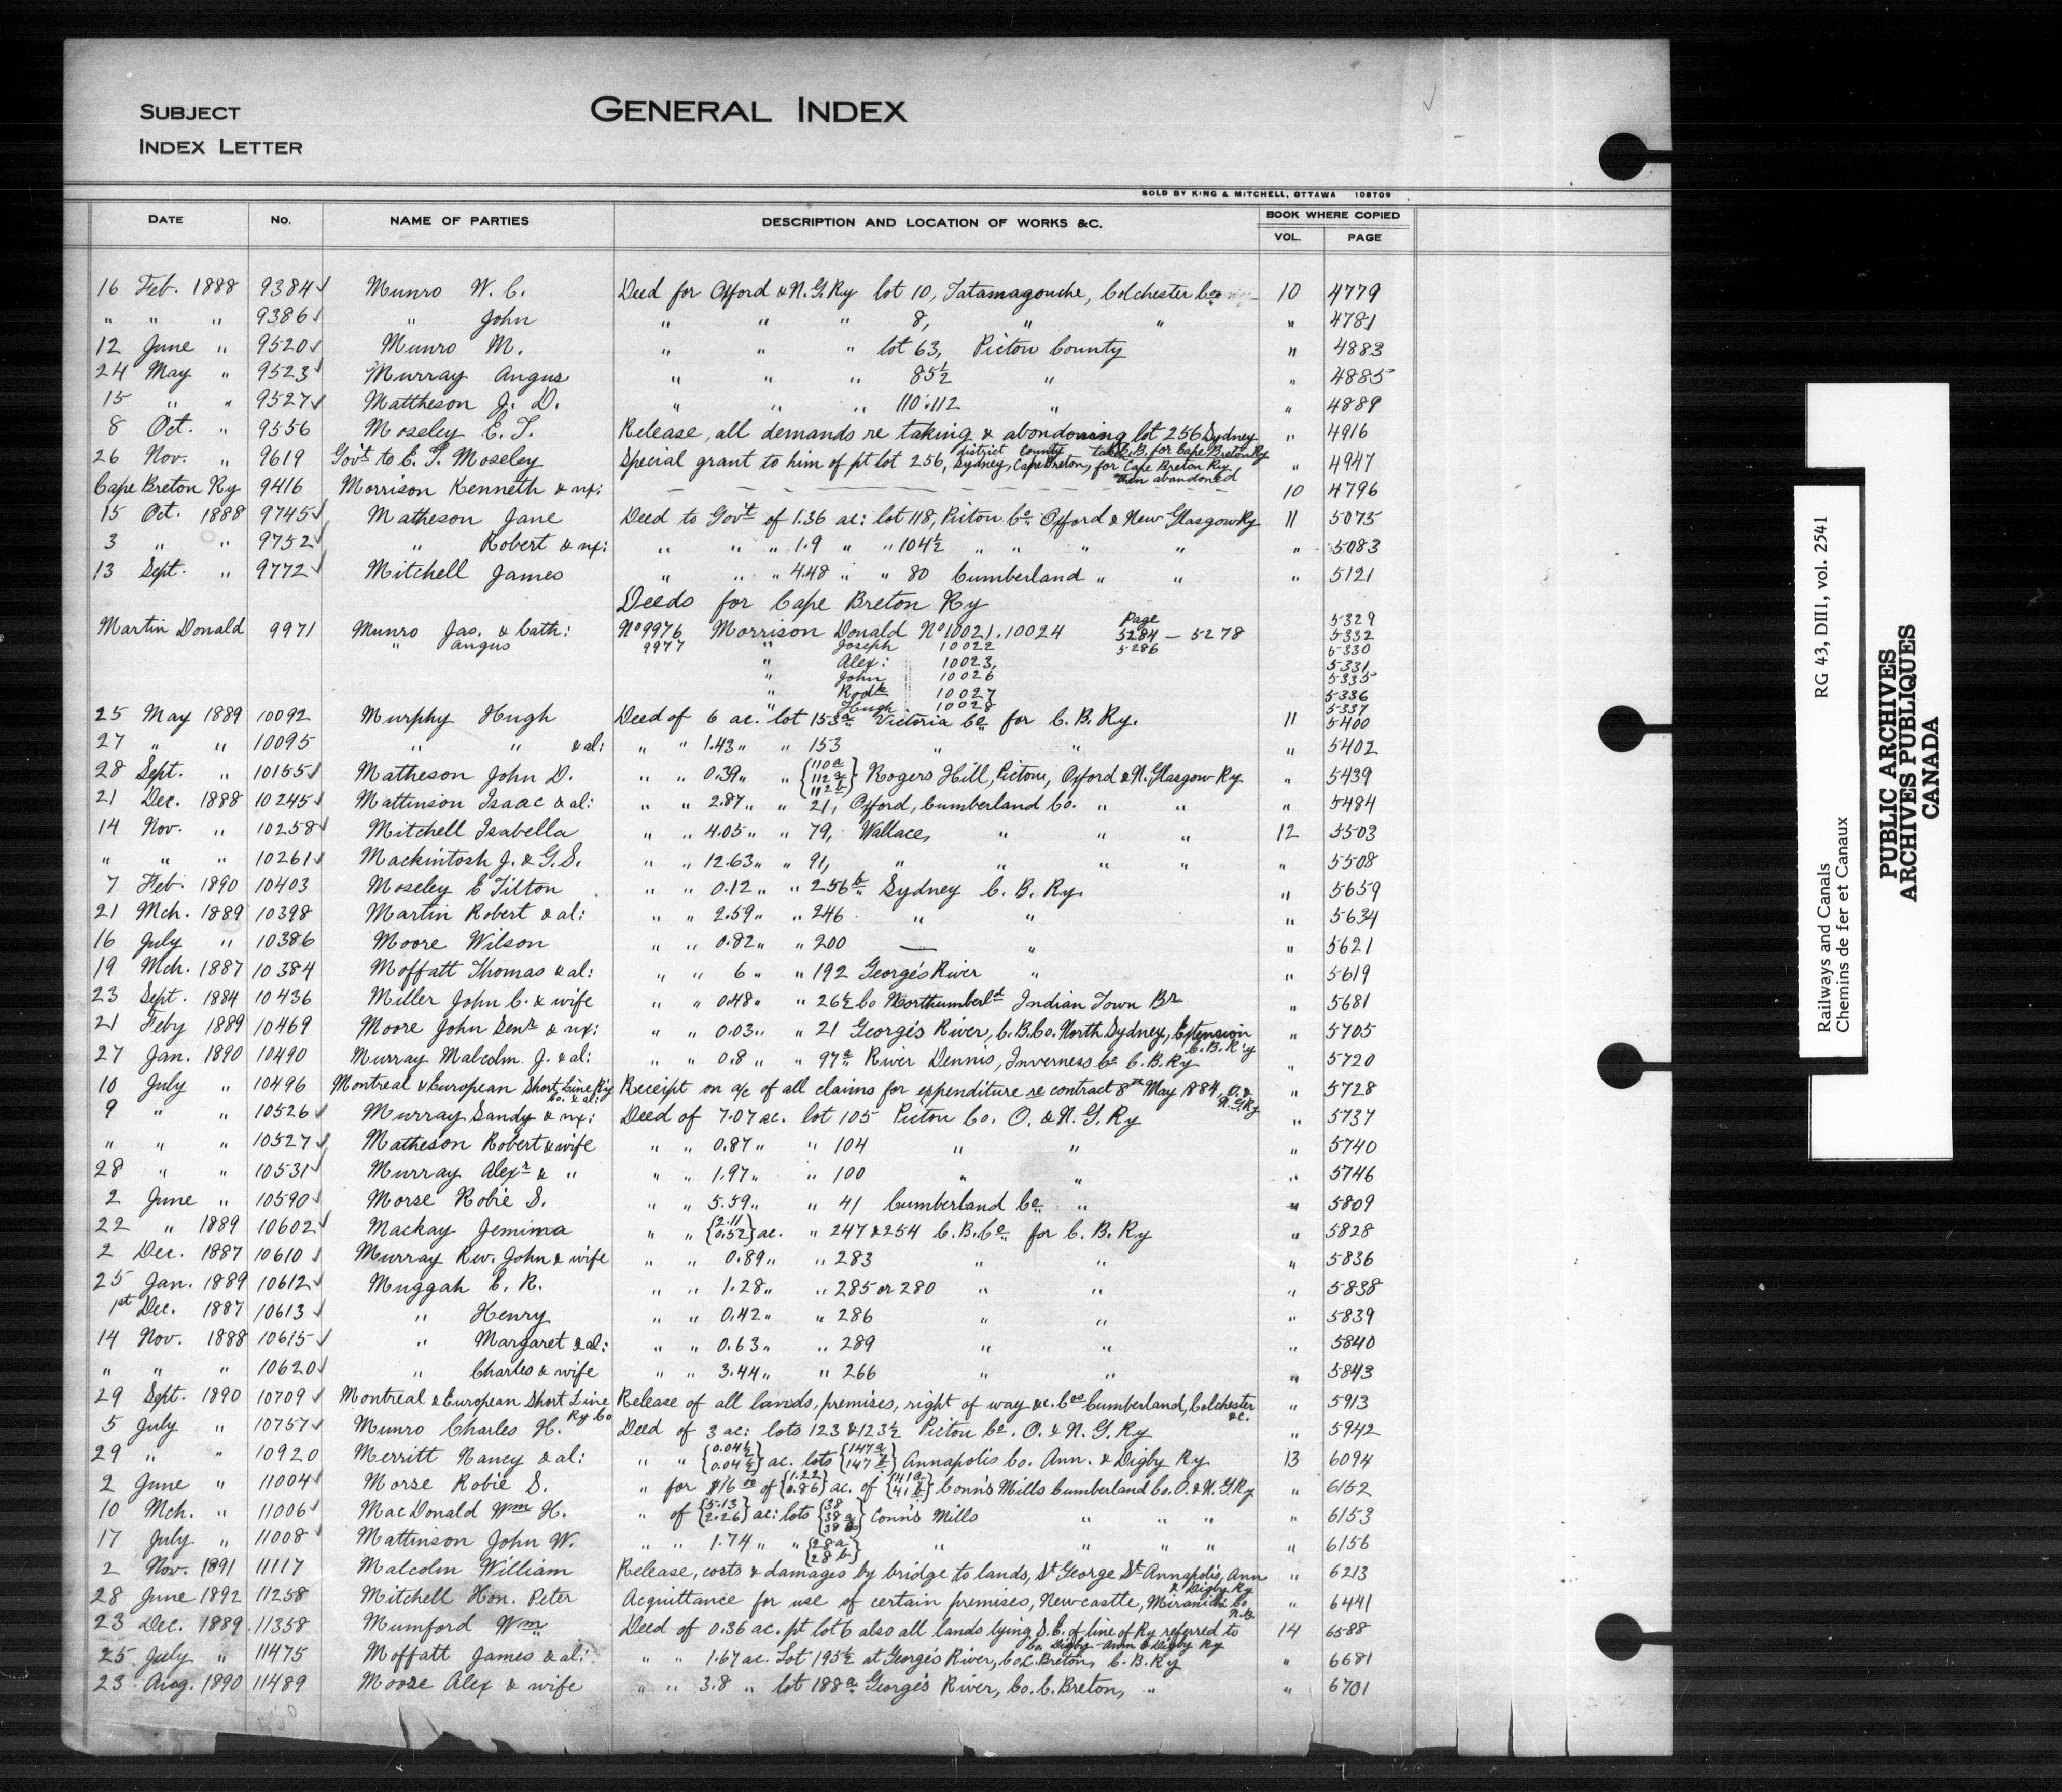 SUBJECT
GENERAL INDEX
INDEX LETTER
SOLD BY KING & MITCHELL, OTTAWA 108709
DATE No. NAME OF PARTIES DESCRIPTION AND LOCATION OF WORKS &C. BOOK WHERE COPIED
VOL. PAGE
16 Feb. 1888 9384✓ Munro W. C. Deed for Oxford & N. G. Ry lot 10, Tatamagouche, Colchester Co. 10 4779
" " " 9386✓ " John " " " 8, " " " 4781
12 June " 9520✓ Munro M. " " " lot 63, Pictou County " 4883
24 May " 9523✓ Murray Angus " " " 85½ " " 4885
15 " " 9527✓ Mattheson J. D. " " " 110.112 " " 4889
8 Oct. " 9556 Moseley E. T. Release, all demands re taking & abandoning lot 256 Sydney " 4916
26 Nov. " 9619 Gov't to E. T. Moseley Special grant to him of pt lot 256, Sydney, district County Cape Breton, for Cape Breton Ry " 4947
then abandoned
Cape Breton Ry 9416 Morrison Kenneth & ux: — — — — 10 4796
15 Oct. 1888 9745✓ Matheson Jane Deed to Gov't of 1.36 ac: lot 118, Picton Co. Oxford & New Glasgow Ry 11 5075
3 " " 9752✓ " Robert & ux: " " " 1.9 " " 104½ " " " " " 5083
13 Sept. " 9772✓ Mitchell James " " " 4.48 " " 80 Cumberland " " " 5121
Deeds for Cape Breton Ry
Martin Donald 9971 Munro Jas. & Cath: No 9976 Morrison Donald No 10021.10024 Page 5284 — 5278 5329 5332
" Angus 9977 " Joseph 10022 5286 5330
" Alex: 10023, 5331
" John 10026 5335
" Rodk 10027 5336
" Hugh 10028 5337
25 May 1889 10092 Murphy Hugh Deed of 6 ac. lot 153a Victoria Co for C. B. Ry. 11 5400
27 " " 10095 " " & al: " " 1.43 " " 153 " " " 5402
28 Sept. " 10155✓ Matheson John D. " " 0.39 " " {110a 112a 112b} Rogers Hill, Pictou, Oxford & N. Glasgow Ry " 5439
21 Dec. 1888 10245✓ Mattinson Isaac & al: " " 2.87 " " 21, Oxford, Cumberland Co. " " " 5484
14 Nov. " 10258✓ Mitchell Isabella " " 4.05 " " 79, Wallace, " " " 12 5503
" " " 10261✓ Mackintosh J. & G. S. " " 12.63 " " 91, " " " " " 5508
7 Feb. 1890 10403 Moseley E Tilton " " 0.12 " " 256b Sydney C. B. Ry. " 5659
21 Mch. 1889 10398 Martin Robert & al: " " 2.59 " " 246 " " " 5634
16 July " 10386 Moore Wilson " " 0.82 " " 200 — " " 5621
19 Mch. 1887 10384 Moffatt Thomas & al: " " 6 " " 192 George's River " " 5619
23 Sept. 1884 10436 Miller John C. & wife " " 0.48 " " 26½ Co Northumberld Indian Town Br " 5681
21 Feby 1889 10469 Moore John Senr & ux: " " 0.03 " " 21 George's River, C. B. Co. North Sydney, Extension " 5705
C. B. R'y
27 Jan. 1890 10490 Murray Malcolm J. & al: " " 0.8 " " 97a River Dennis, Inverness Co C. B. Ry " 5720
10 July " 10496 Montreal & European Short Line R'y Receipt on a/c of all claims for expenditure re contract 8th May 1884, O. & " 5728
Co. & al: N. G. Ry
9 " " 10526✓ Murray Sandy & ux: Deed of 7.07 ac. lot 105 Picton Co. O. & N. G. Ry " 5737
" " " 10527✓ Matheson Robert & wife " " 0.87 " " 104 " " " 5740
28 " " 10531✓ Murray Alexr & " " " 1.97 " " 100 " " " 5746
2 June " 10590✓ Morse Robie S. " " 5.59 " " 41 Cumberland Co " " 5809
22 " 1889 10602✓ Mackay Jemima " " {2.11 0.52} ac. " 247 & 254 C. B. Co. for C. B. Ry " 5828
2 Dec. 1887 10610✓ Murray Rev. John & wife " " 0.89 " " 283 " " " 5836
25 Jan. 1889 10612✓ Muggah E. R. " " 1.28 " " 285 or 280 " " " 5838
1st Dec. 1887 10613✓ " Henry " " 0.42 " " 286 " " " 5839
14 Nov. 1888 10615✓ " Margaret & al: " " 0.63 " " 289 " " " 5840
" " " 10620✓ " Charles & wife " " 3.44 " " 266 " " " 5843
29 Sept. 1890 10709✓ Montreal & European Short Line Release of all lands, premises, right of way &c. Cos Cumberland, Colchester " 5913
Ry Co &c.
5 July " 10757✓ Munro Charles H. Deed of 3 ac: lots 123 & 123½ Picton Co. O. & N. G. Ry " 5942
29 " " 10920 Merritt Nancy & al: " " {0.04½ 0.04½} ac. lots {147a 147b} Annapolis Co. Ann. & Digby Ry. 13 6094
2 June " 11004✓ Morse Robie S. " for $16 00 of {1.22 0.86} ac. of {41a 41b} Conn's Mills Cumberland Co. O. & N. G. Ry " 6152
10 Mch. " 11006✓ MacDonald Wm H. " of {5.13 2.26} ac: lots {38 38a 38b} Conn's Mills " " " " 6153
17 July " 11008✓ Mattinson John W. " " 1.74 " " {28a 28b} " " " " " 6156
2 Nov. 1891 11117 Malcolm William Release, costs & damages by bridge to lands, St George St Annapolis, Ann " 6213
& Digby Ry
28 June 1892 11258 Mitchell Hon. Peter Acquittance for use of certain premises, Newcastle, Miramichi Co " 6441
N.B.
23 Dec. 1889 11358 Mumford Wm Deed of 0.36 ac. pt lot 6 also all lands lying S. E. of line of Ry referred to 14 6588
Co. Digby - Ann. & Digby Ry
25 July " 11475 Moffatt James & al: " " 1.67 ac. Lot 195½ at George's River, Co C. Breton, C. B. Ry " 6681
23 Aug. 1890 11489 Moore Alex & wife " " 3.8 " lot 188a George's River, Co. C. Breton, " " 6701
RG 43, DIII, vol. 2541
Railways and Canals
Chemins de fer et Canaux
PUBLIC ARCHIVES
ARCHIVES PUBLIQUES
CANADA